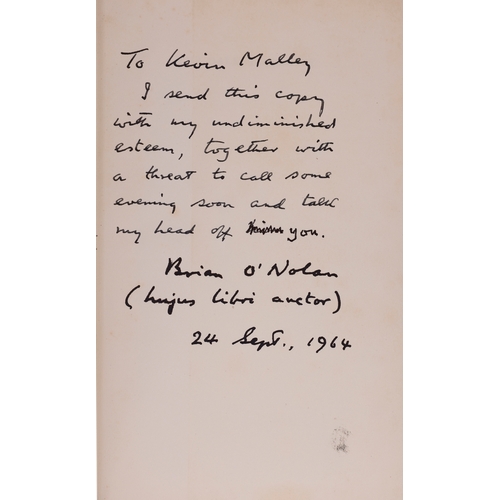 To Kevin Malley
I send this copy
with my undiminished
esteem, together with
a threat to call some
evening soon and talk
my head off you.
Brian O'Nolan
(hujus libri auctor)
24 Sept., 1964